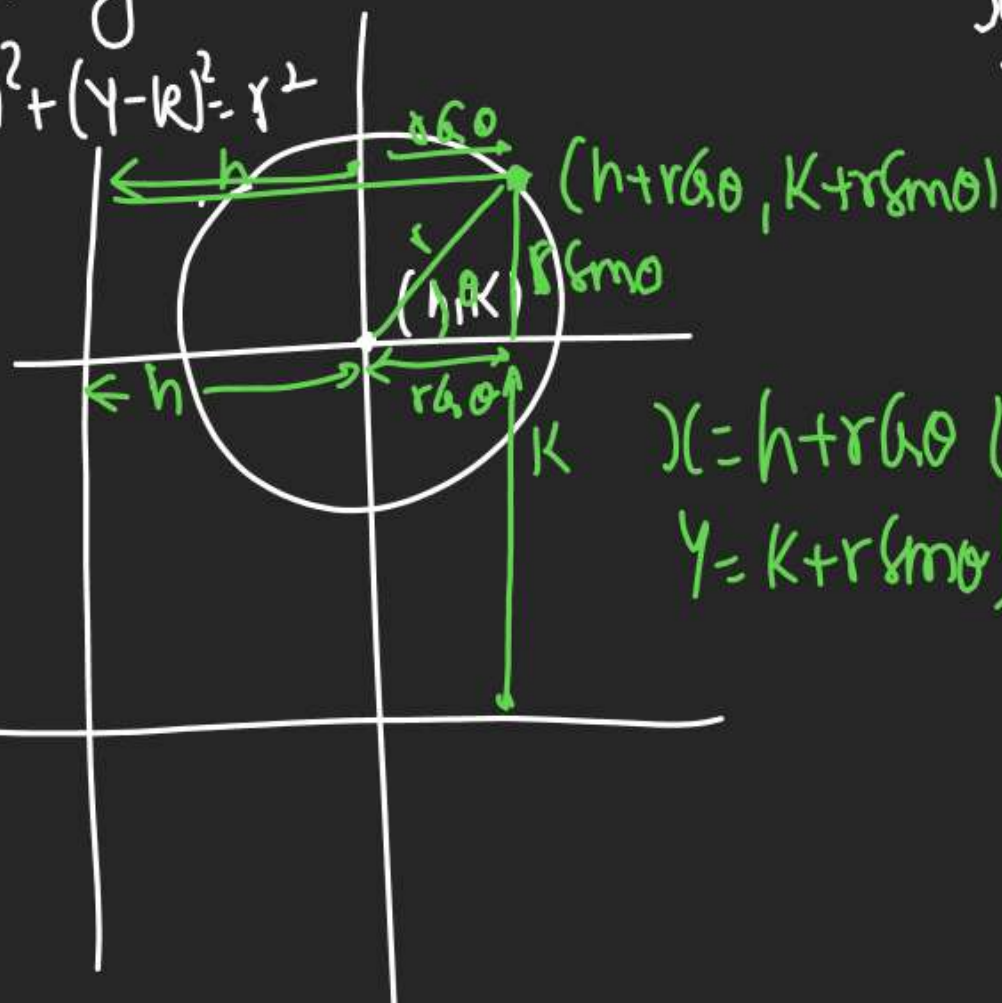 )²+(Y-k)²=r²
rCosθ
h
(h+rCosθ, K+rSinθ)
r
rSinθ
(h,K)
θ
h
rCosθ
K
x=h+rCosθ (
Y=K+rSinθ